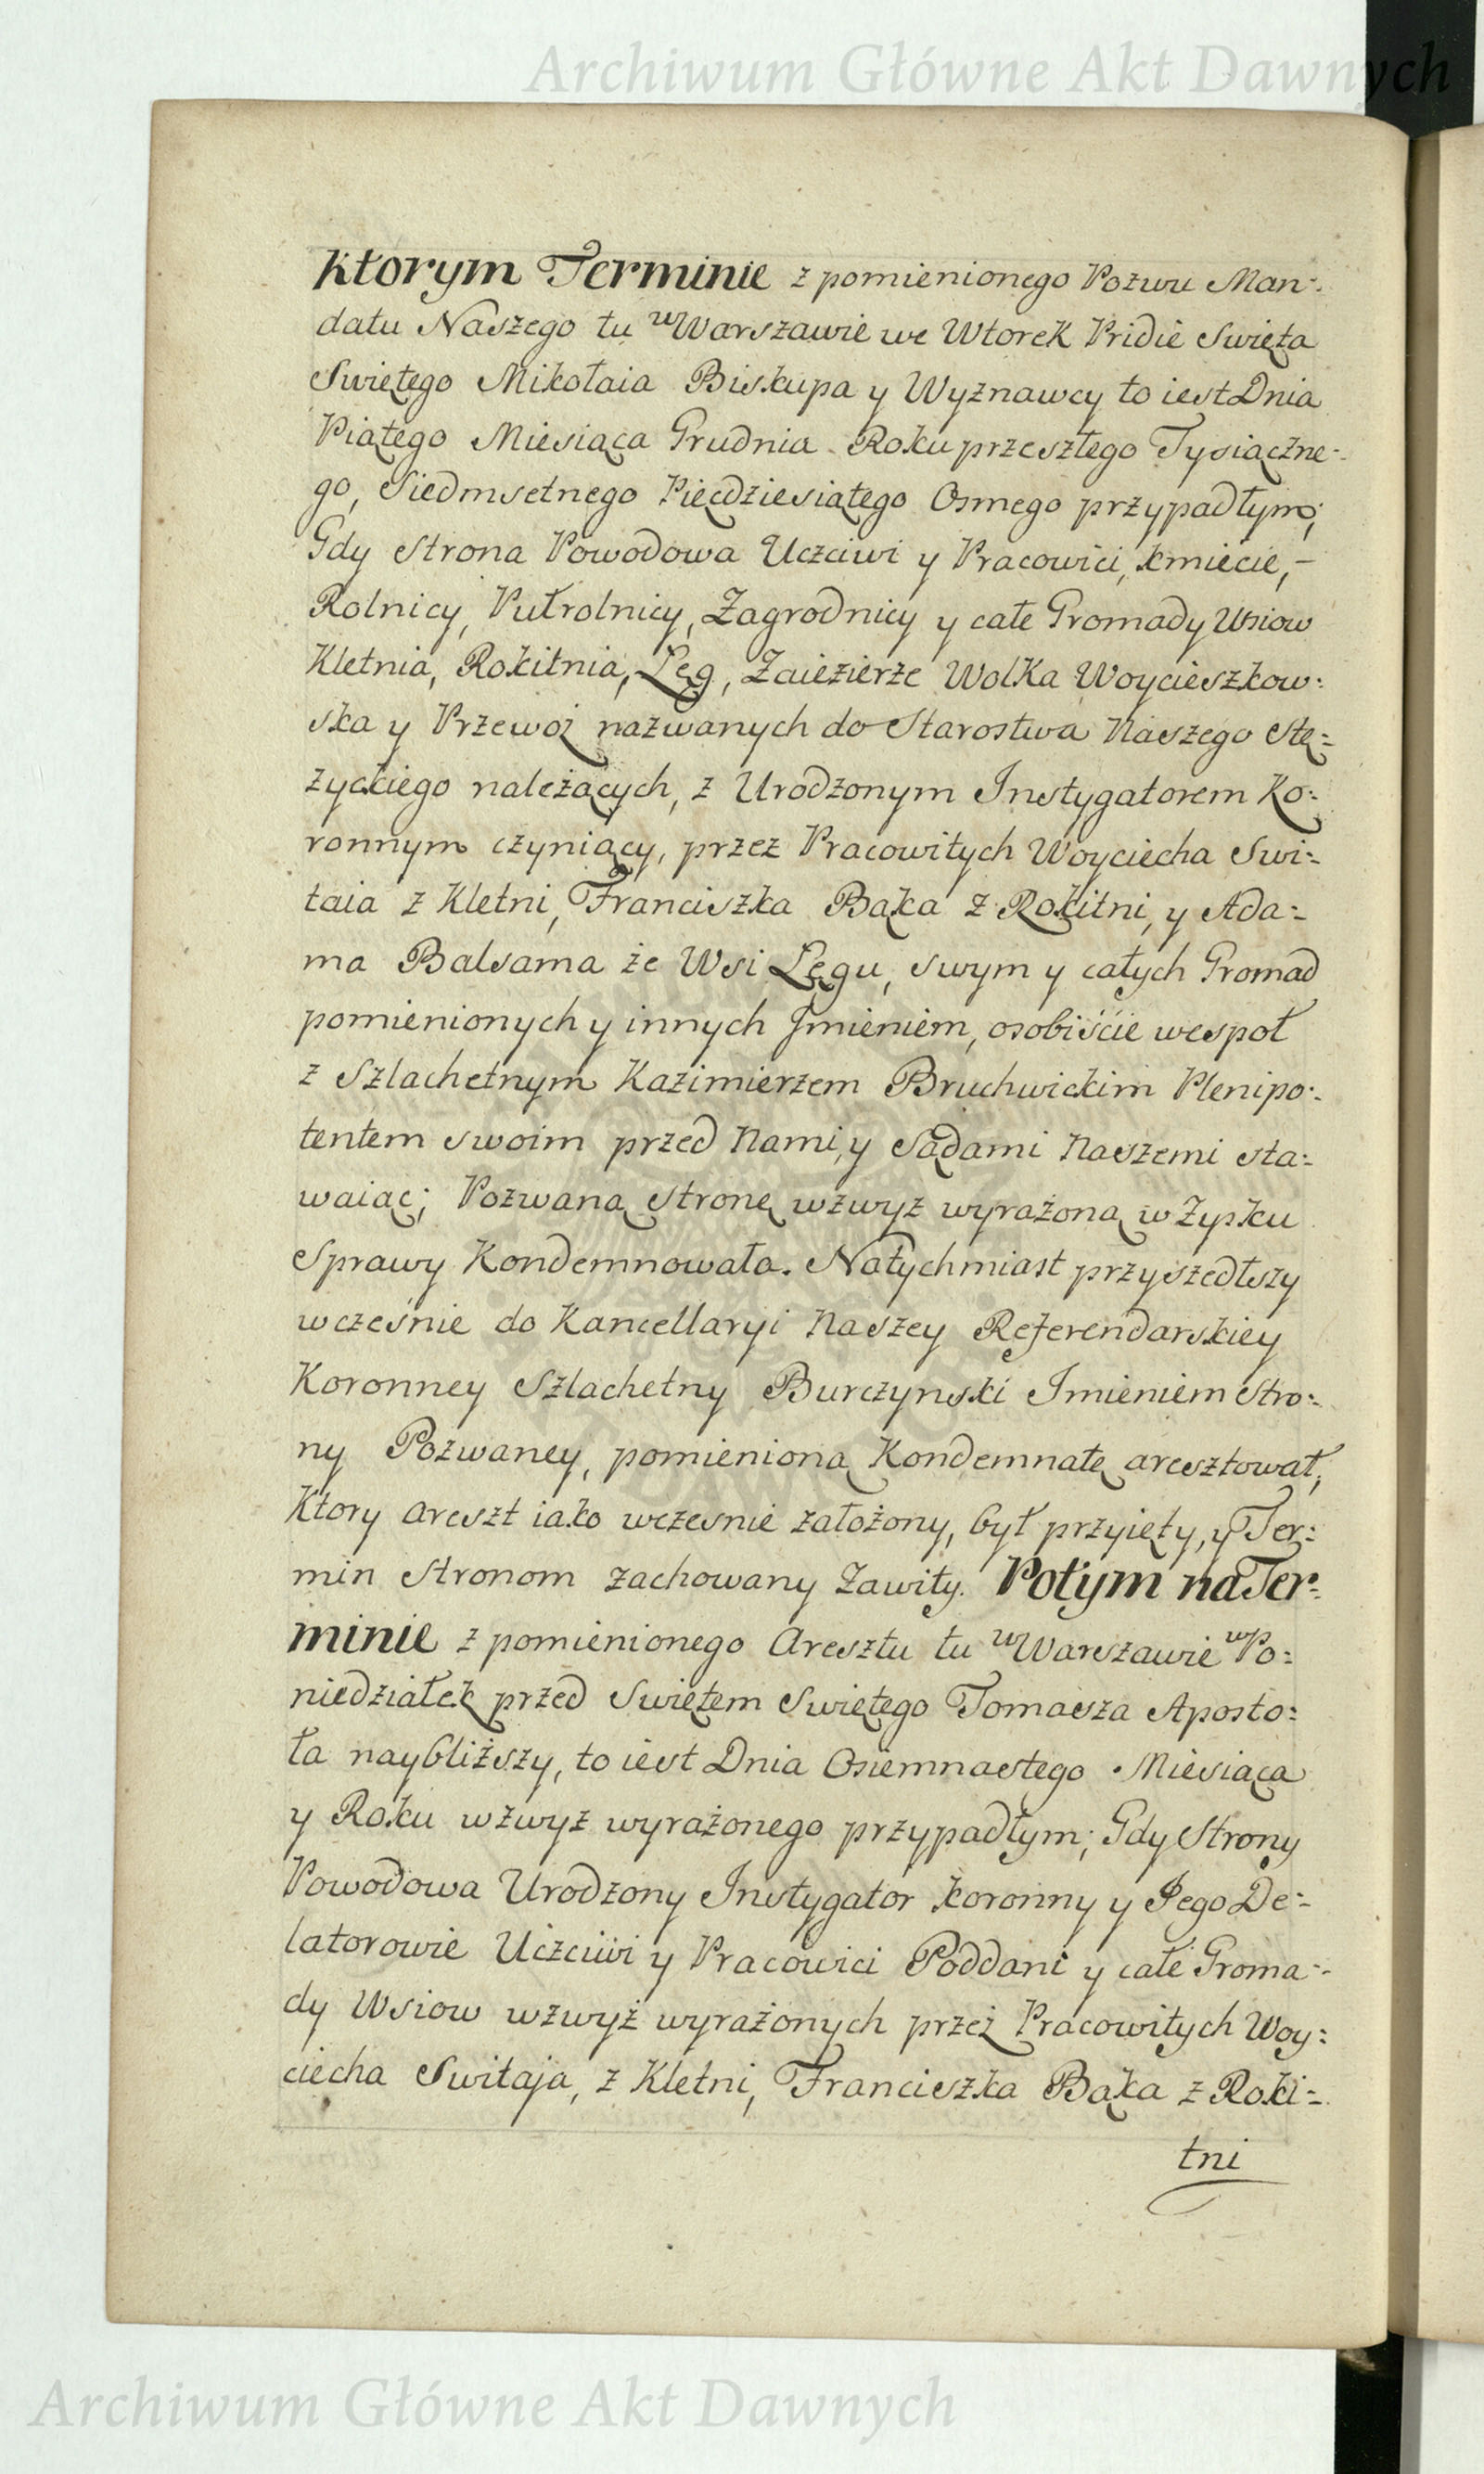 Archiwum Główne Akt Dawnych
Ktorym Terminie z pomienionego Pozwu Man-
datu Naszego tu w Warszawie we Wtorek Pridie Swięta
Swiętego Mikołaia Biskupa y Wyznawcy to iest Dnia
Piątego Miesiąca Grudnia Roku przeszłego Tysiączne-
go, Siedmsetnego Pięcdziesiątego Osmego przypadłym;
Gdy Strona Powodowa Uczciwi y Pracowici, Kmiecie, –
Rolnicy, Pułrolnicy, Zagrodnicy y całe Gromady Wsiow
Kletnia, Rokitnia, Lęg, Zaiezierze Wolka Woycieszkow:
ska y Przewoż nazwanych do Starostwa Naszego Stę=
życkiego należących, z Urodzonym Instygatorem Ko:
ronnym czyniący, przez Pracowitych Woyciecha Swi:
taia z Kletni, Franciszka Bąka z Rokitni, y Ada:
ma Balsama ze Wsi Lęgu, swym y całych Gromad
pomienionych y innych Jmieniem, osobiście wespoł
z Szlachetnym Kazimierzem Bruchwickim Plenipo:
tentem swoim przed Nami, y Sądami Naszemi sta:
waiąc; Pozwaną stronę wzwyz wyrażoną w Zysku
Sprawy Kondemnowała. Natychmiast przyszedłszy
wcześnie do Kancellaryi Naszey Referendarskiey
Koronney Szlachetny Burczynski Imieniem Stro:
ny Pozwaney, pomienioną Kondemnatę aresztował,
Ktory areszt iako wczesnie założony, był przyięty, y Ter:
min Stronom zachowany Zawity. Potym na Ter:
minie z pomienionego Aresztu tu w Warszawie w Po:
niedziałek przed Swiętem Swiętego Tomasza Aposto:
ła naybliższy, to iest Dnia Osiemnastego Miesiąca
y Roku wzwyz wyrażonego przypadłym; Gdy Strony
Powodowa Urodzony Instygator Koronny y Jego De:
latorowie Uczciwi y Pracowici Poddani y całe Groma:
dy Wsiow wzwyż wyrażonych przez Pracowitych Woy:
ciecha Switaja, z Kletni, Franciszka Bąka z Roki:
tni
Archiwum Główne Akt Dawnych